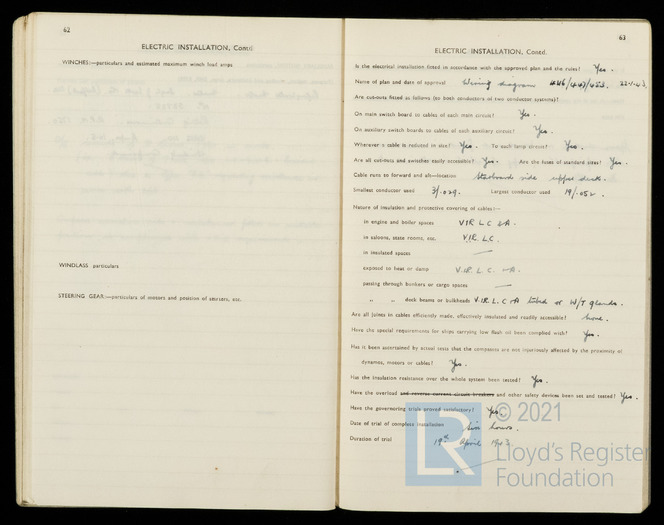 62
ELECTRIC INSTALLATION, Contd.
WINCHES:—particulars and estimated maximum winch load amps
WINDLASS particulars
STEERING GEAR:—particulars of motors and position of starters, etc.
63
ELECTRIC INSTALLATION, Contd.
Is the electrical installation fitted in accordance with the approved plan and the rules? Yes.
Name of plan and date of approval Wiring diagram 446/447/453.
Are cut-outs fitted as follows (to both conductors of two conductor systems)?
On main switch board to cables of each main circuit? Yes.
On auxiliary switch boards to cables of each auxiliary circuit? Yes.
Wherever a cable is reduced in size? Yes. To each lamp circuit? Yes.
Are all cut-outs and switches easily accessible? Yes. Are the fuses of standard sizes? Yes.
Cable runs to forward and aft—location Starboard side upper deck.
Smallest conductor used 3/.029. Largest conductor used 19/.052.
Nature of insulation and protective covering of cables:—
in engine and boiler spaces V.I.R. L.C. &A.
in saloons, state rooms, etc. V.I.R. L.C.
in insulated spaces —
exposed to heat or damp V.I.R. L.C. &A.
passing through bunkers or cargo spaces —
„ „ deck beams or bulkheads V.I.R. L.C &A tubed or W/T glands.
Are all joints in cables efficiently made, effectively insulated and readily accessible? None.
Have the special requirements for ships carrying low flash oil been complied with? Yes.
Has it been ascertained by actual tests that the compasses are not injuriously affected by the proximity of
dynamos, motors or cables? Yes.
Has the insulation resistance over the whole system been tested? Yes.
Have the overload and reverse current circuit breakers and other safety devices been set and tested? Yes.
Have the governoring trials proved satisfactory? Yes.
Date of trial of complete installation six hours.
Duration of trial 19th April 1943
LR
© 2021
Lloyd's Register
Foundation